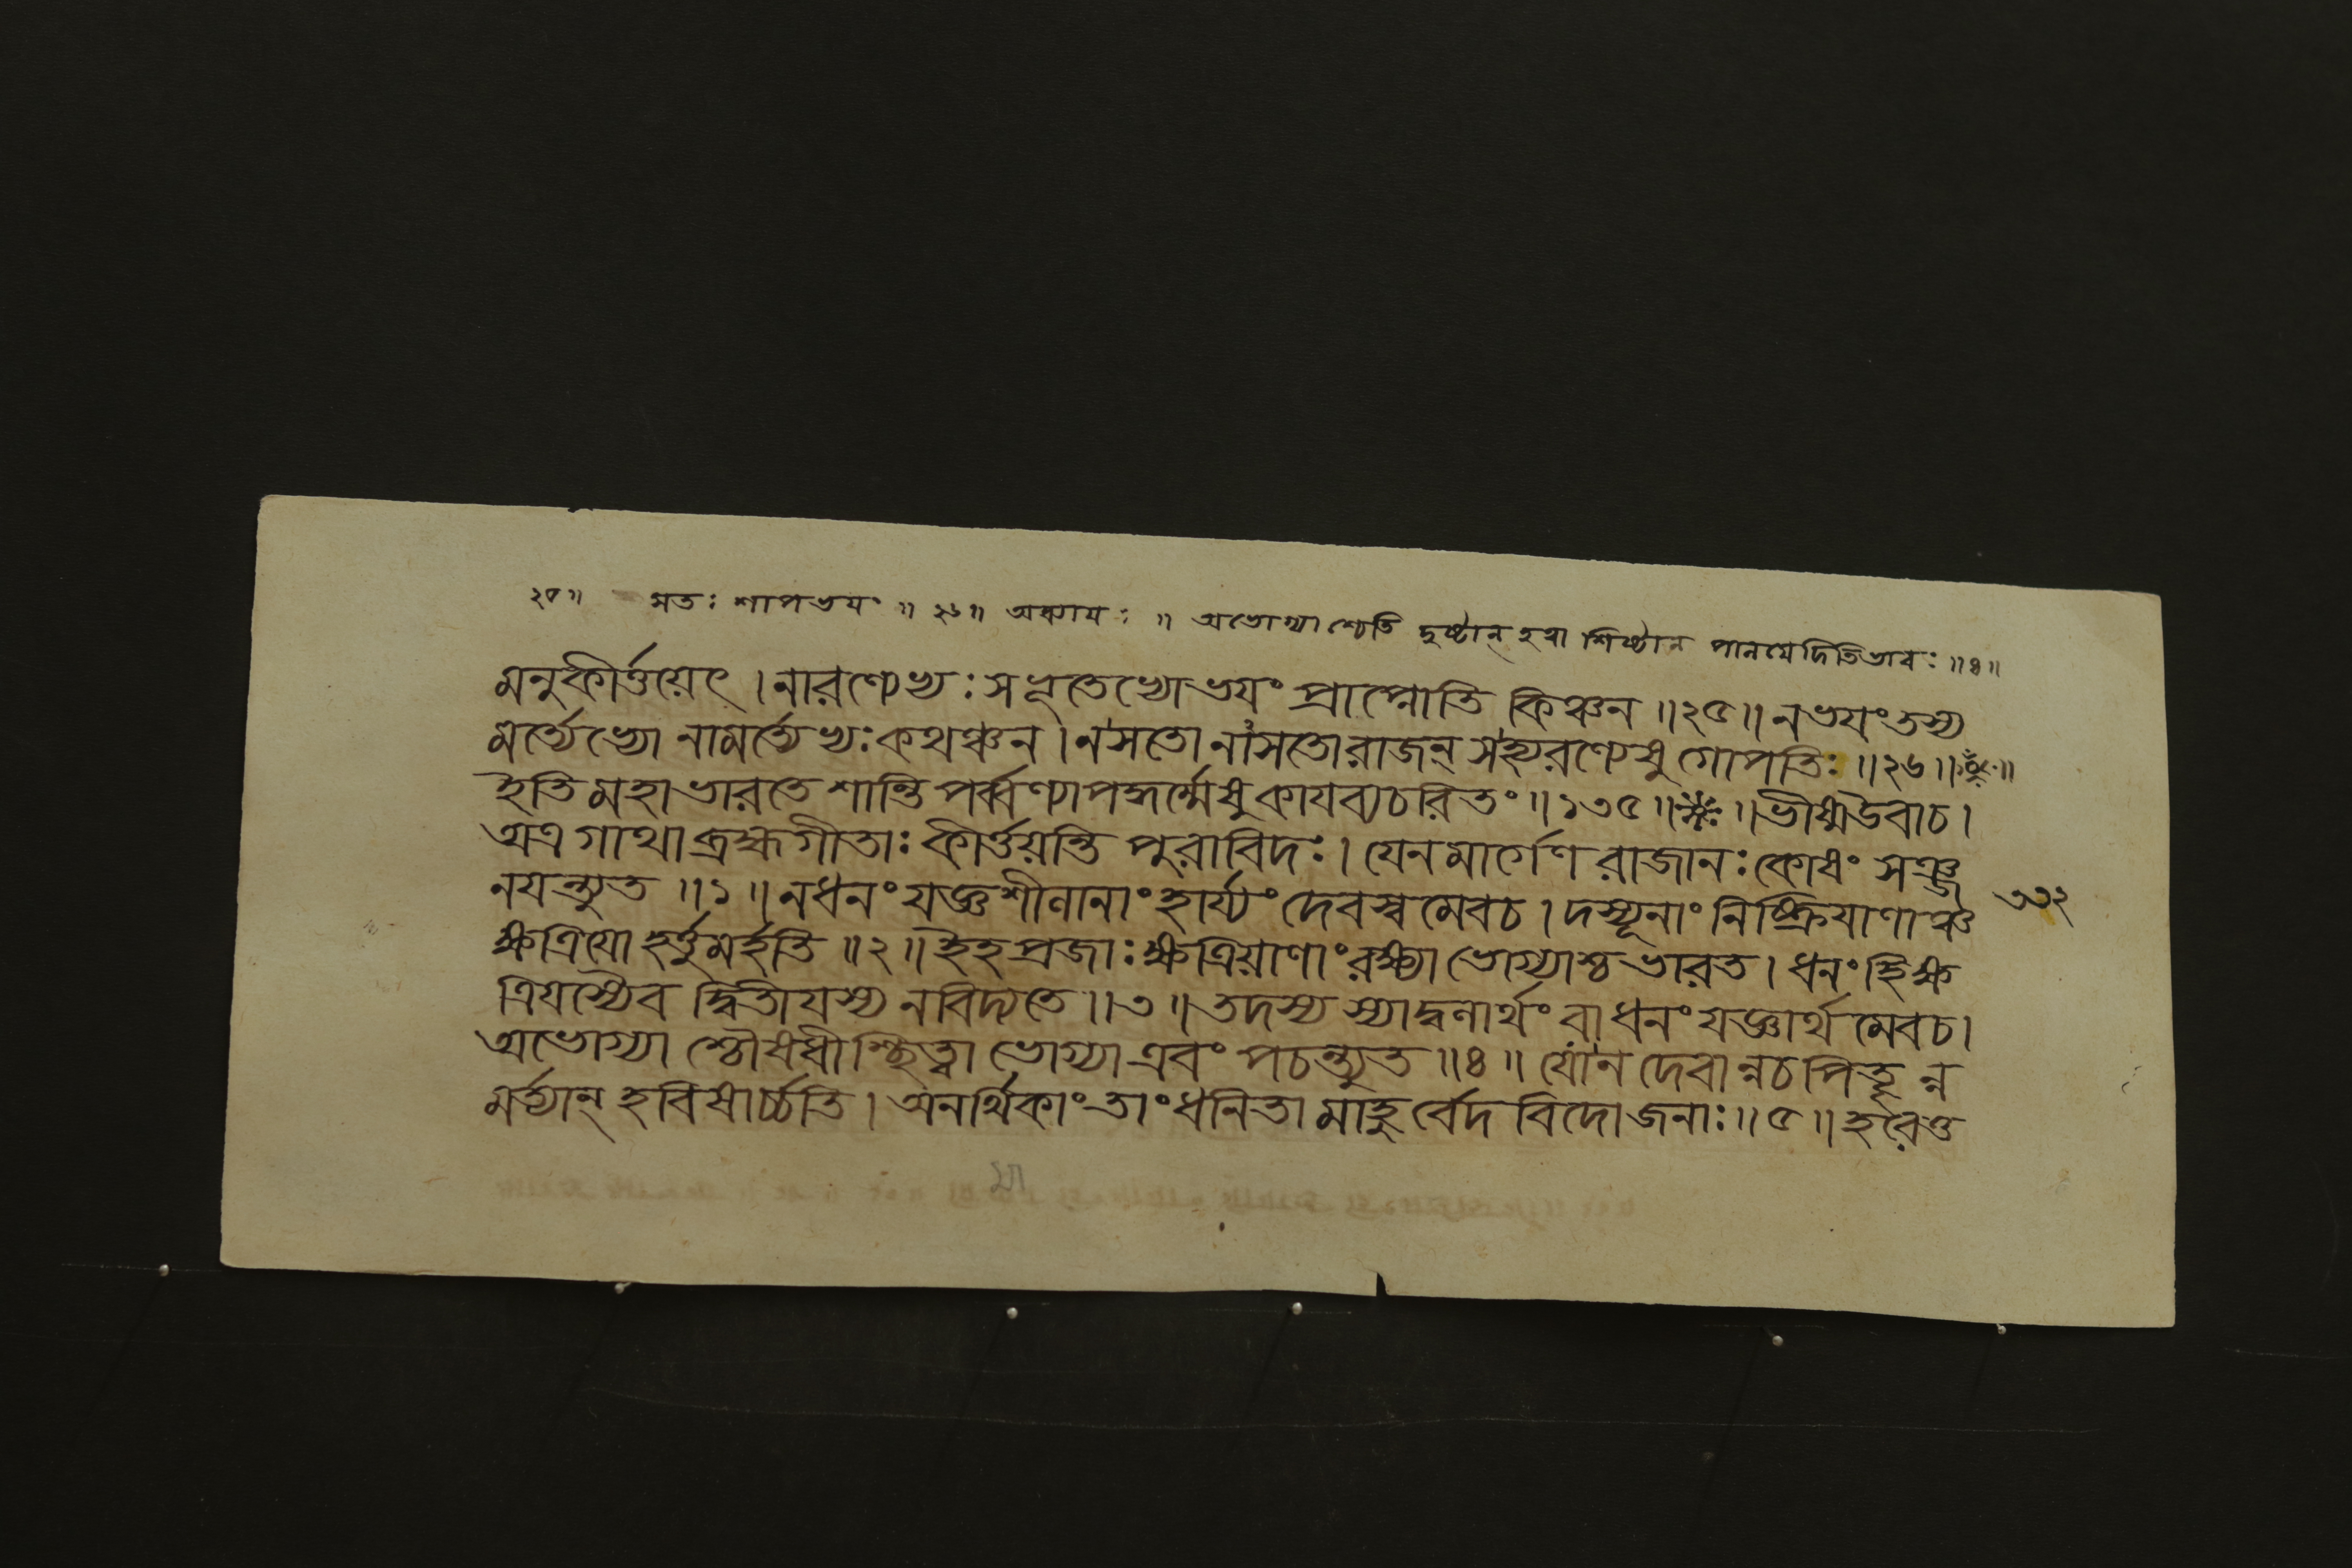 ২৫॥ সতঃ শাপভয়ং ॥ ২৬॥ অধ্যায়ঃ ॥ অভোগ্যাশ্চেতি দুষ্টান্ হত্বা শিষ্টান পালয়েদিতিভাবঃ ॥৪॥
মনুকীর্ত্তয়েৎ । নারণ্যেভ্যঃ সভূতেভ্যোভয়ং প্রাপ্নোতি কিঞ্চন ॥২৫॥ নভয়ংতস্য
মর্ত্যেভ্যো নামর্ত্যেভ্যঃ কথঞ্চন । নসতো নাসতোরাজন্ সহ্যরণ্যেষু গোপতিঃ ॥২৬॥
ইতি মহাভারতে শান্তিপর্ব্বণ্যাপদ্ধর্ম্মেষু কাযব্যচরিতং ॥১৩৫॥ ভীষ্মউবাচ ।
অত্র গাথা ব্রহ্মগীতাঃ কীর্ত্তয়ন্তি পুরাবিদঃ । যেন মার্গেণ রাজানঃ কোষং সঞ্জ
নয়ন্ত্যুত ॥১॥ নধনং যজ্ঞশীলানাং হার্য্যং দেবস্ব মেবচ । দস্যূনাং নিষ্ক্রিয়াণাঞ্চ ৩৩২
ক্ষত্রিয়ো হর্ত্তুমর্হতি ॥২॥ ইহ প্রজাঃ ক্ষত্রিয়াণাং রক্ষ্যা ভোগ্যাশ্চ ভারত । ধনং হি ক্ষ
ত্রিয়স্যৈব দ্বিতীয়স্য নবিদ্যতে ॥৩॥ তদস্য স্যাদ্বলার্থং বা ধনং যজ্ঞার্থ মেবচ ।
অভোগ্যা শ্চৌষধীশ্ছিত্ত্বা ভোগ্যা এবং পচন্ত্যুত ॥৪॥ যোন দেবান্নচপিতৄন্ন
মর্ত্ত্যান্ হবিষার্চ্চতি । অনর্থিকাং তাং ধনিতা মাহুর্বেদ বিদোজনাঃ ॥৫॥ হরেত্ত